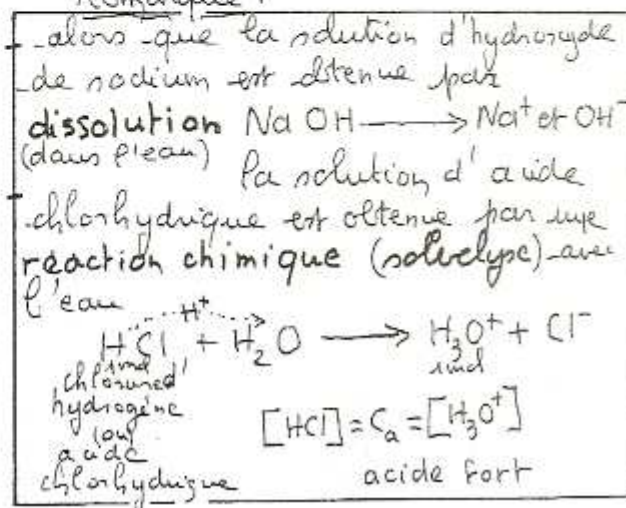 Remarque :
- alors que la solution d'hydroxyde
de sodium est obtenue par
dissolution Na OH ⟶ Na⁺ et OH⁻
(dans l'eau)
la solution d'acide
chlorhydrique est obtenue par une
réaction chimique (solvolyse) avec
l'eau
H⁺
HCl + H₂O ⟶ H₃O⁺ + Cl⁻
1mol 1mol
chlorure d'
hydrogène
(ou
acide
chlorhydrique
[HCl] = Cₐ = [H₃O⁺]
acide fort